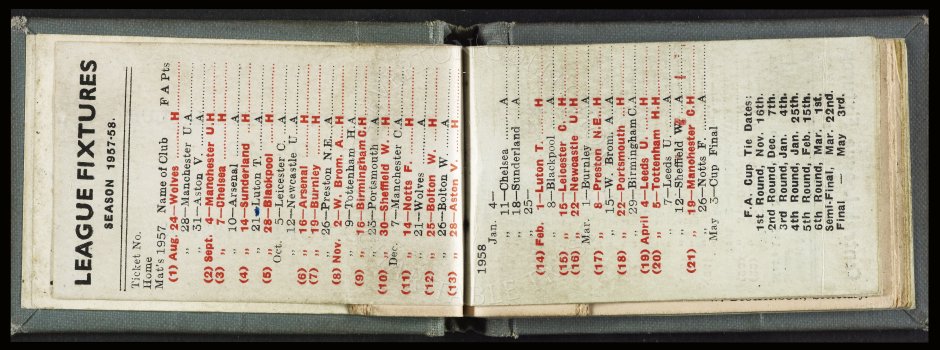 LEAGUE FIXTURES
SEASON 1957-58.
Ticket No.
Home
Mat's 1957 Name of Club F A Pts
(1) Aug. 24—Wolves H
„ 28—Manchester U. A
„ 31—Aston V. A
(2) Sept. 4—Manchester U. H
(3) „ 7—Chelsea H
„ 10—Arsenal A
(4) „ 14—Sunderland H
„ 21—Luton T. A
(5) „ 28—Blackpool H
Oct. 5—Leicester C. A
„ 12—Newcastle U. A
(6) „ 16—Arsenal H
(7) „ 19—Burnley H
„ 26—Preston N.E. A
(8) Nov. 2—W. Brom. A. H
„ 9—Tottenham H. A
(9) „ 16—Birmingham C. H
„ 23—Portsmouth A
(10) „ 30—Sheffield W. H
Dec. 7—Manchester C. A
(11) „ 14—Notts F. H
„ 21—Wolves A
(12) „ 25—Bolton W. H
„ 26—Bolton W. A
(13) „ 28—Aston V. H
1958
Jan. 4—
„ 11—Chelsea A
„ 18—Sunderland A
„ 25—
(14) Feb. 1—Luton T. H
„ 8—Blackpool A
(15) „ 15—Leicester C. H
(16) „ 22—Newcastle U. H
Mar. 1—Burnley A
(17) „ 8—Preston N.E. H
„ 15—W. Brom. A. A
(18) „ 22—Portsmouth H
„ 29—Birmingham C. A
(19) April 4—Leeds U. H
(20) „ 5—Tottenham H. H
„ 7—Leeds U. A
„ 12—Sheffield W. A
(21) „ 19—Manchester C. H
„ 26—Notts F. A
May 3—Cup Final
F.A. Cup Tie Dates:
1st Round, Nov. 16th.
2nd Round, Dec. 7th.
3rd Round, Jan. 4th.
4th Round, Jan. 25th.
5th Round, Feb. 15th.
6th Round, Mar. 1st.
Semi-Final, Mar. 22nd.
Final — May 3rd.